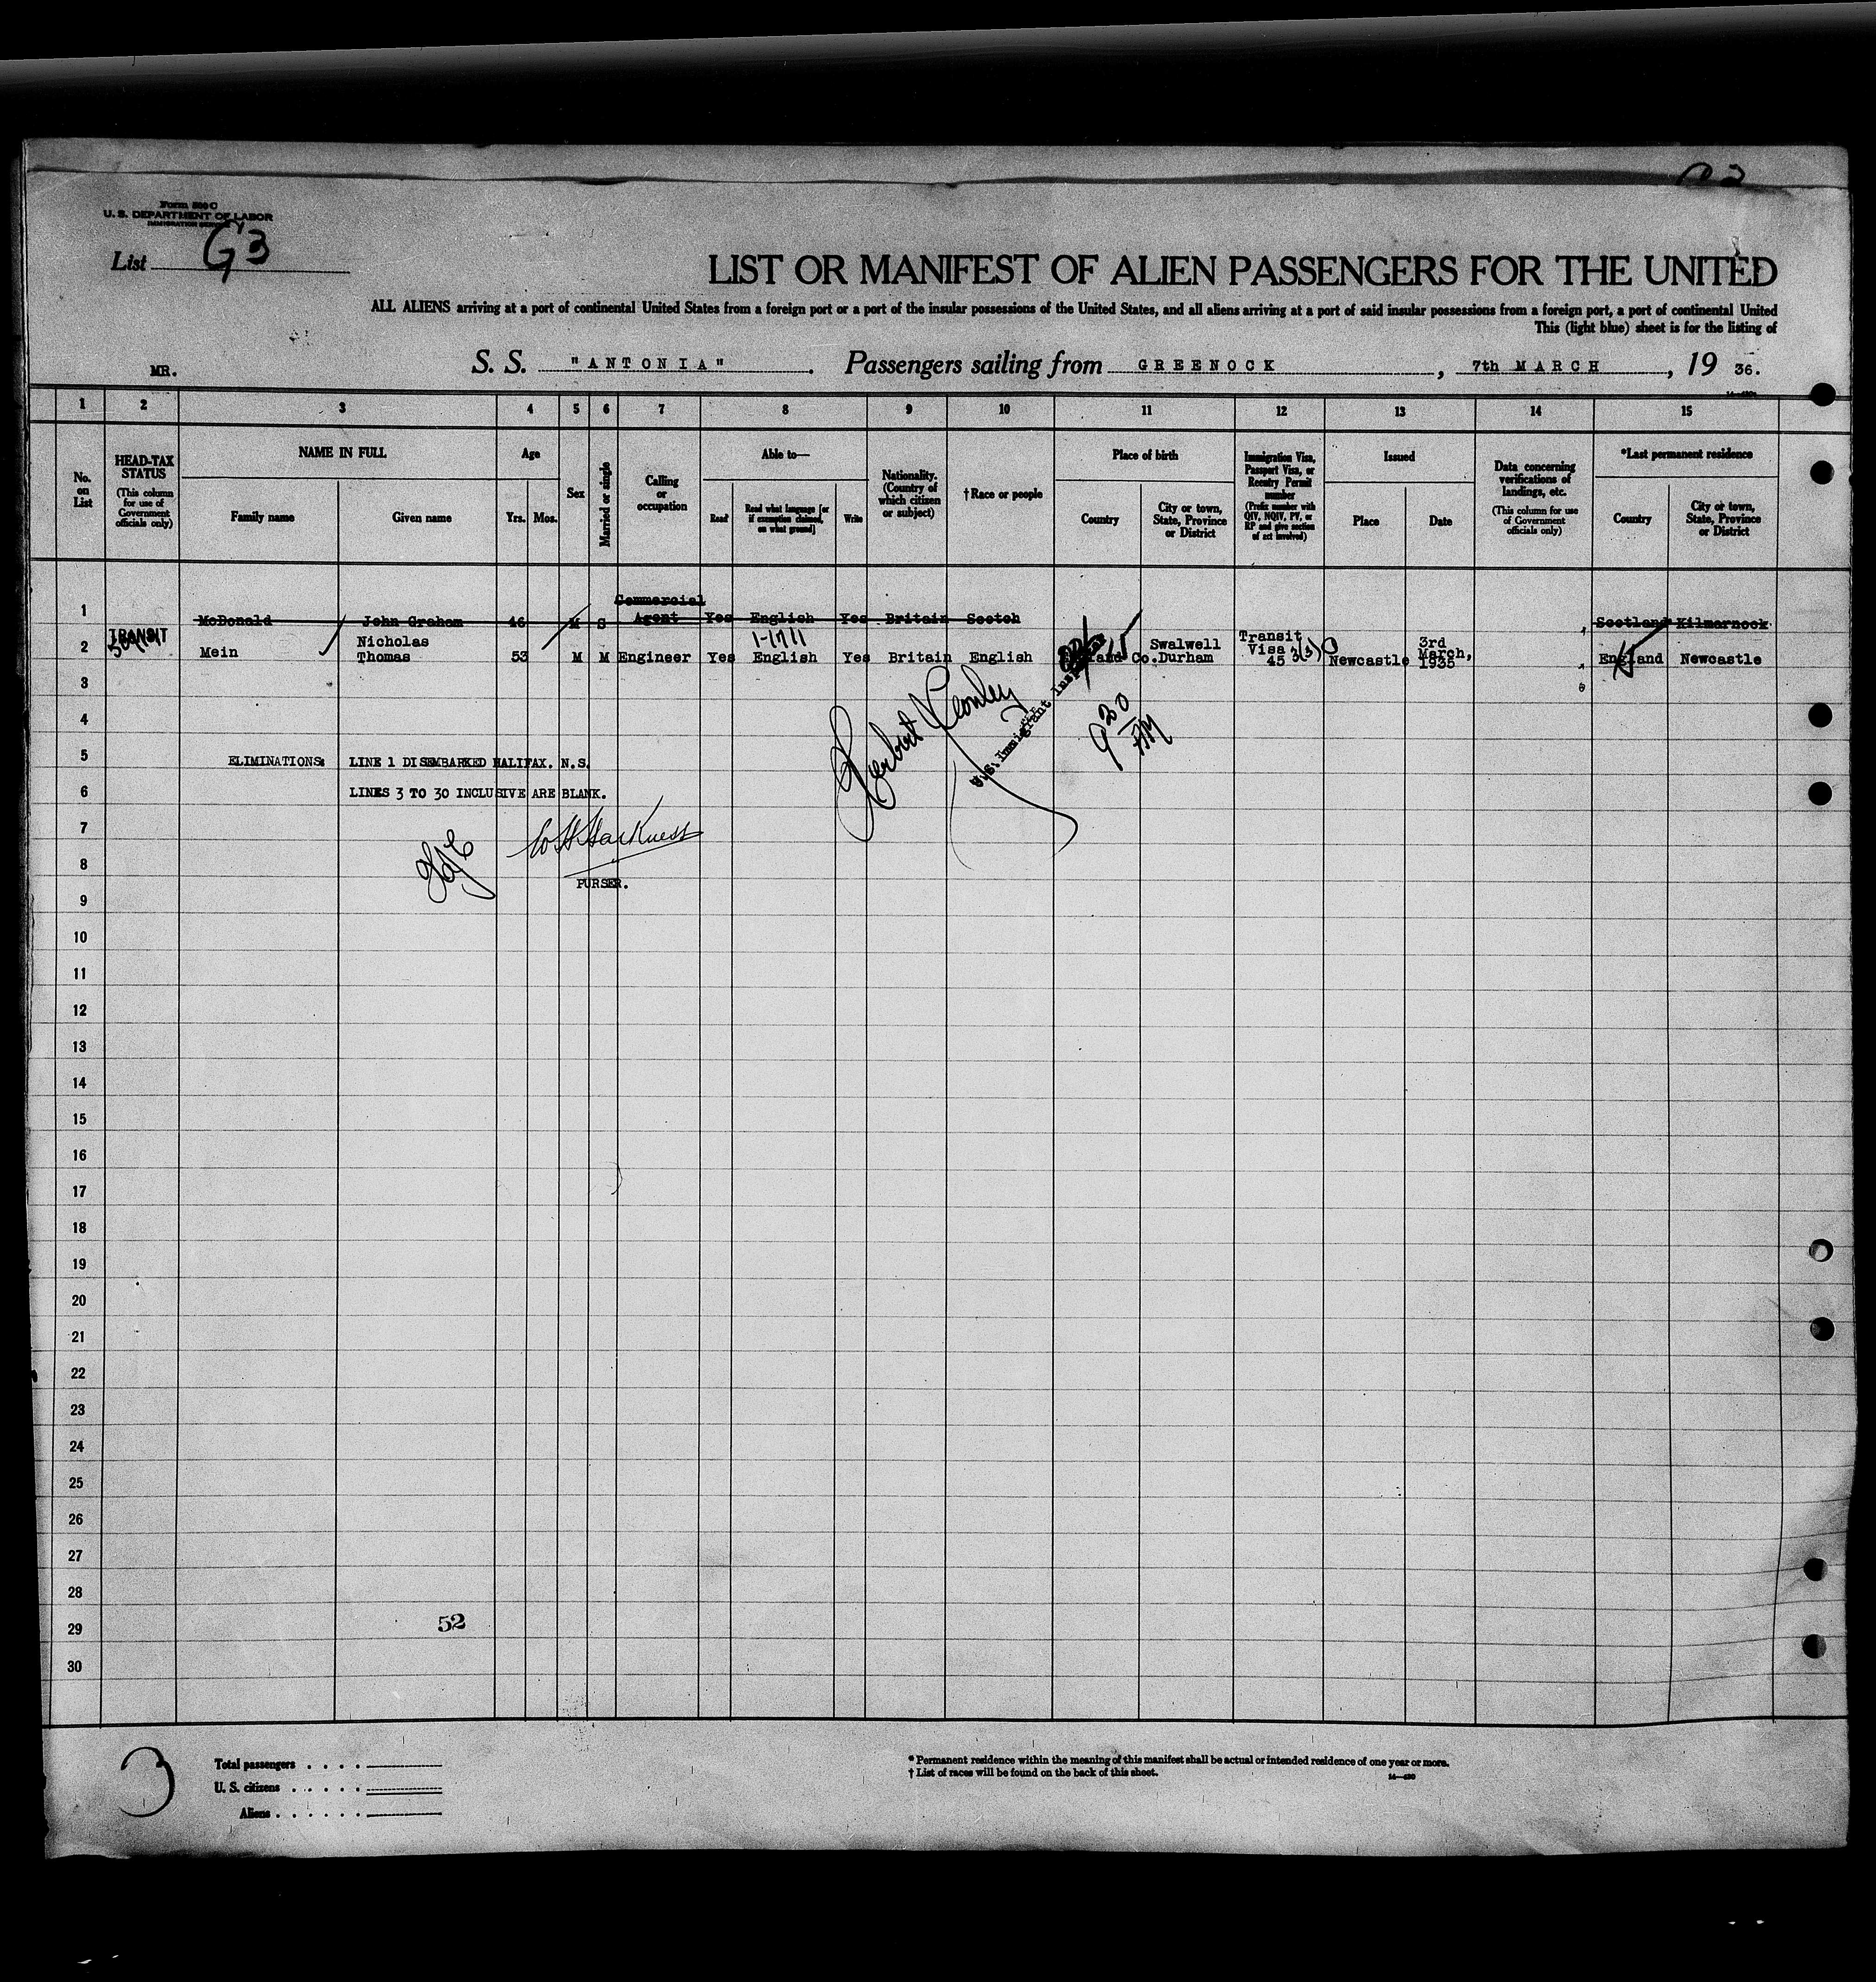 Form 500 C
U. S. DEPARTMENT OF LABOR
IMMIGRATION SERVICE
List G3
LIST OR MANIFEST OF ALIEN PASSENGERS FOR THE UNITED
ALL ALIENS arriving at a port of continental United States from a foreign port or a port of the insular possessions of the United States, and all aliens arriving at a port of said insular possessions from a foreign port, a port of continental United
This (light blue) sheet is for the listing of
MR. S. S. "ANTONIA". Passengers sailing from GREENOCK, 7th MARCH, 19 36.
1 2 3 4 5 6 7 8 9 10 11 12 13 14 15
No. on List
HEAD-TAX STATUS
(This column for use of Government officials only)
NAME IN FULL
Family name
Given name
Age
Yrs. Mos.
Sex
Married or single
Calling or occupation
Able to—
Read
Read what language [or if exemption claimed, on what ground]
Write
Nationality. (Country of which citizen or subject)
†Race or people
Place of birth
Country
City or town, State, Province or District
Immigration Visa, Passport Visa, or Reentry Permit number
(Prefix number with QIV, NQIV, PV, or RP and give section of act involved)
Issued
Place
Date
Data concerning verifications of landings, etc.
(This column for use of Government officials only)
*Last permanent residence
Country
City or town, State, Province or District
1 McDonald John Graham 46 M S Commercial Agent Yes English Yes Britain Scotch Scotland Kilmarnock
2 TRANSIT Mein Nicholas Thomas 53 M M Engineer Yes English Yes Britain English Swalwell Co.Durham Transit Visa 45 3(3) Newcastle 3rd March, 1935 England Newcastle
3
U.S. Immigrant
4
9 30 AM
5 ELIMINATIONS: LINE 1 DISEMBARKED HALIFAX. N.S.
6 LINES 3 TO 30 INCLUSIVE ARE BLANK.
7
W H Harkness
8
PURSER.
9
10
11
12
13
14
15
16
17
18
19
20
21
22
23
24
25
26
27
28
29 52
30
3
Total passengers . . . .
U. S. citizens . . . . .
Aliens . . . . . .
* Permanent residence within the meaning of this manifest shall be actual or intended residence of one year or more.
† List of races will be found on the back of this sheet.